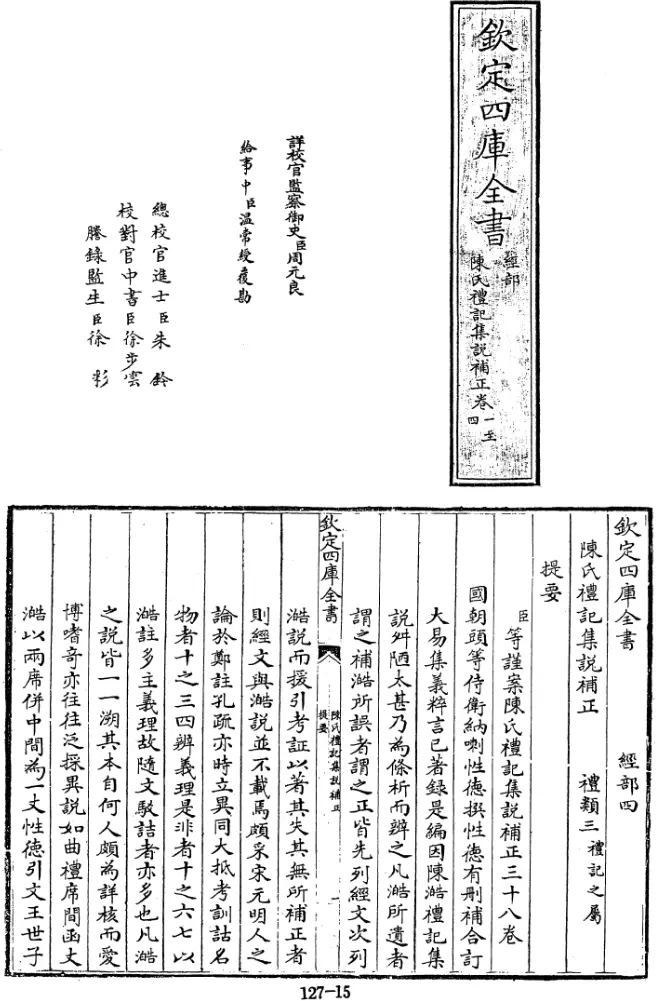 欽定四庫全書
經部
陳氏禮記集說補正卷一至四
詳校官監察御史臣周元良
給事中臣温常綬覆勘
總校官進士臣朱鈐
校對官中書臣徐步雲
謄錄監生臣徐彩
欽定四庫全書 經部四
陳氏禮記集說補正 禮類三禮記之屬
提要
臣等謹案陳氏禮記集說補正三十八卷
國朝頭等侍衛納喇性德撰性德有刪補合訂
大易集義粹言已著錄是編因陳澔禮記集
說舛陋太甚乃為條析而辨之凡澔所遺者
謂之補澔所誤者謂之正皆先列經文次列
欽定四庫全書
陳氏禮記集說補正
提要
一
澔說而援引考証以著其失其無所補正者
則經文與澔說並不載焉頗采宋元明人之
論於鄭註孔疏亦時立異同大抵考訓詁名
物者十之三四辨義理是非者十之六七以
澔註多主義理故隨文駮詰者亦多也凡澔
之說皆一一溯其本自何人頗為詳核而愛
博嗜奇亦往往泛採異說如曲禮席間函丈
澔以兩席併中間為一丈性德引文王世子
127-15